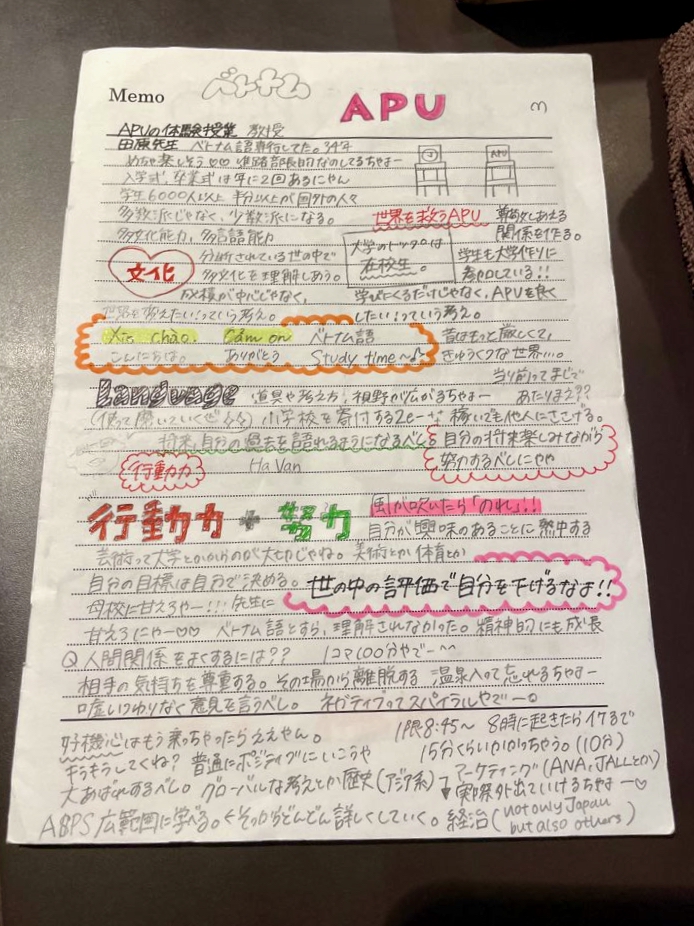 Memo ベトナム APU
APUの体験授業 教授
田原先生 ベトナム語専行してた。34年
めちゃ楽しそう♡♡ 進路部長的なのしてるちゃまー
入学式、卒業式は年に2回あるにゃん
学生6000人以上 半分以上が国外の人々
多数派じゃなく、少数派になる。
世界を救うAPU 尊敬しあえる
関係を作る。
多文化能力、多言語能力
大学のトップは
在校生。
学生も大学作りに
参加している!!
文化
分断されている世の中で
多文化を理解しあう。
成績が中心じゃなく、
学びにくるだけじゃなく、APUを良く
世界を変えたい!っていう考え。
したい!っていう考え。
Xin chào. Cảm ơn ベトナム語
こんにちは。 ありがとう Study time〜♪
昔はもっと厳しくて、
きゅうくつな世界…。
当り前ってまじで
あたりまえ??
Language 道具や考え方、視野が広がるちゃまー
(使って磨いていくぜ) 小学校を寄付する 稼いでも他人にささげる。
将来、自分の過去を語れるようになるべし
自分の将来楽しみながら
努力するべしにゃや
行動力 Ha Van
行動力 + 努力
風が吹いたら「のれ」!!
自分が興味のあることに熱中する
芸術って大学とかからのが大切じゃね。美術とか体育とか
自分の目標は自分で決める。
世の中の評価で自分を下げるなよ!!
母校に甘えろやー!!! 先生に
甘えろにゃー♡♡ ベトナム語とすら、理解されなかった。精神的にも成長
Q 人間関係をよくするには?? 1コマ100分やでー^^
相手の気持ちを尊重する。その場から離脱する 温泉入って忘れるちゃまー
嘘いつわりなく意見を言うべし。 ネガティブってスパイラルやでー。
好機心はもう乗っちゃったらええやん。
1限8:45〜 8時に起きたらイケるで
15分くらいかかっちゃう。(10分)
そうもうしてくね? 普通にポジティブにいこうや
マーケティング(ANA,JALLとか)
大あばれするべし。 グローバルな考えとか歴史(アジア系)
実際外出ていけるちゃまー♡
APS広範囲に学べる。 そっからどんどん詳しくしていく。 経治(not only Japan
but also others)